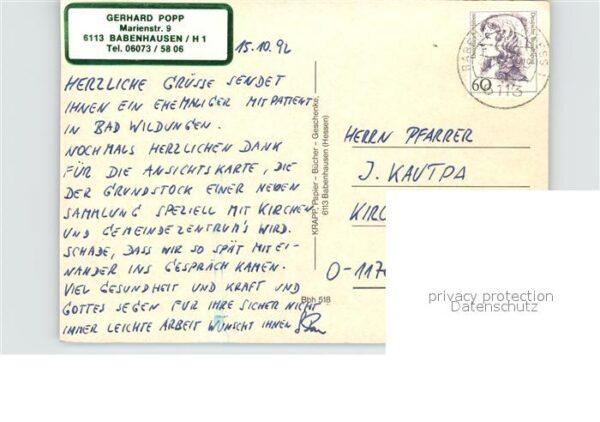 GERHARD POPP
Marienstr. 9
6113 BABENHAUSEN / H 1
Tel. 06073 / 58 06
15.10.92
HERZLICHE GRÜSSE SENDET
IHNEN EIN EHEMALIGER MITPATIENT
IN BAD WILDUNGEN.
NOCHMALS HERZLICHEN DANK
FÜR DIE ANSICHTSKARTE, DIE
DER GRUNDSTOCK EINER NEUEN
SAMMLUNG SPEZIELL MIT KIRCHEN
UND GEMEINDEZENTRUM'S WIRD.
SCHADE, DASS WIR SO SPÄT MITEI-
NANDER INS GESPRÄCH KAMEN.
VIEL GESUNDHEIT UND KRAFT UND
GOTTES SEGEN FÜR IHRE SICHER NICHT
IMMER LEICHTE ARBEIT WÜNSCHT IHNEN
KRAPP, Papier – Bücher – Geschenke,
6113 Babenhausen (Hessen)
Bbh 518
60
6113
HERRN PFARRER
J. KAUTPA
KIRC
O-117
privacy protection
Datenschutz